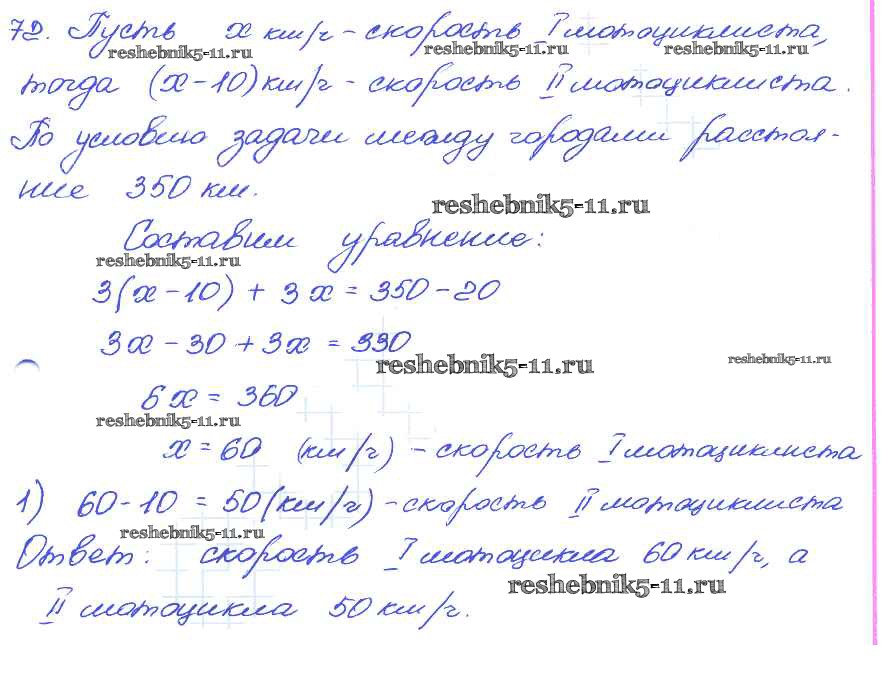 72. Пусть x км/ч – скорость I мотоциклиста,
reshebnik5-11.ru reshebnik5-11.ru reshebnik5-11.ru
тогда (x – 10) км/ч – скорость II мотоциклиста.
По условию задачи между городами расстоя-
ние 350 км.
reshebnik5-11.ru
Составим уравнение:
reshebnik5-11.ru
3(x – 10) + 3x = 350 – 20
3x – 30 + 3x = 330
reshebnik5-11.ru reshebnik5-11.ru
6x = 360
reshebnik5-11.ru
x = 60 (км/ч) – скорость I мотоциклиста
1) 60 – 10 = 50 (км/ч) – скорость II мотоциклиста
reshebnik5-11.ru
Ответ: скорость I мотоцикла 60 км/ч, а
reshebnik5-11.ru
II мотоцикла 50 км/ч.